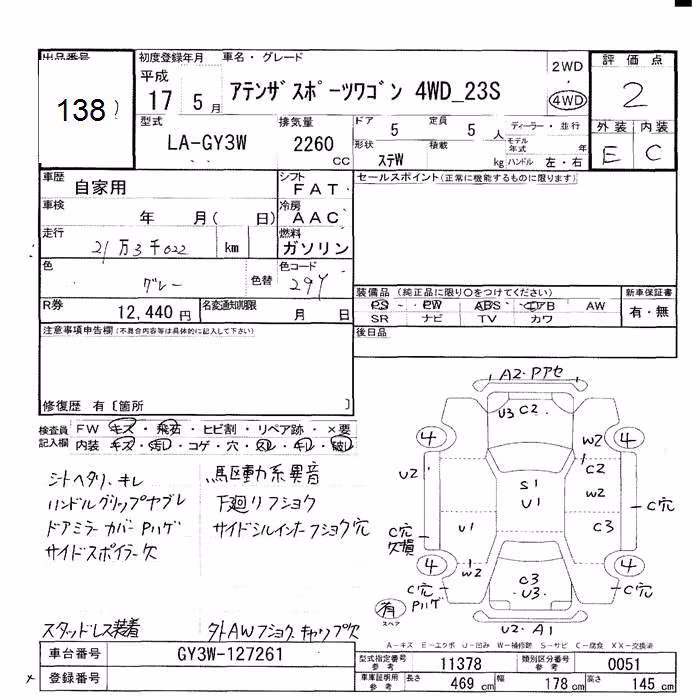 出品番号 初度登録年月 車名・グレード 2WD 評価点
138
平成 17 5月 アテンザスポーツワゴン 4WD_23S 4WD 2
型式 排気量 ドア 5 定員 5人 ディーラー・並行 外装 内装
LA-GY3W 2260 CC 形状 ステW 積載 kg モデル年式 年 ハンドル 左・右 E C
車歴 自家用 シフト FAT セールスポイント(正常に機能するものに限ります)
車検 年 月( 日) 冷房 AAC
走行 21万3千022 km 燃料 ガソリン
色 グレー 色替 色コード 29Y
装備品(純正品に限り○をつけてください) 新車保証書
PS PW ABS エアB AW 有・無
R券 12,440円 名変通知期限 月 日 SR ナビ TV カワ
注意事項申告欄(不具合内容等は具体的に記入して下さい) 後日品
修復歴 有〔箇所 〕
検査員記入欄 FW キズ・飛石・ヒビ割・リペア跡・×要
内装 キズ・汚レ・コゲ・穴・スレ・キレ・破レ
シートヘタリ、キレ 駆動系異音
ハンドルグリップヤブレ 下廻りフショク
ドアミラーカバーPハゲ サイドシルインナーフショク穴
サイドスポイラー欠
スタッドレス装着 タトAWフショクキャップ欠
A2・Pアセ
U3 C2
4 W2 4
U2 C2
S1 W2
U1 C穴
C穴 欠損 U1 C3
4 W2 4
C穴 Pハゲ C3 U3 C穴
有 スペア
U2・A1
A-キズ E-エクボ U-凹み W-補修跡 S-サビ C-腐食 XX-交換済
車台番号 GY3W-127261 型式指定番号 参考 11378 類別区分番号 参考 0051
登録番号 車庫証明用 参考 長さ 469 cm 幅 178 cm 高さ 145 cm